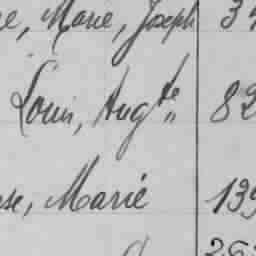 Marie, Joseph 3
Louis, Aug.te 82
se, Marie 139
263